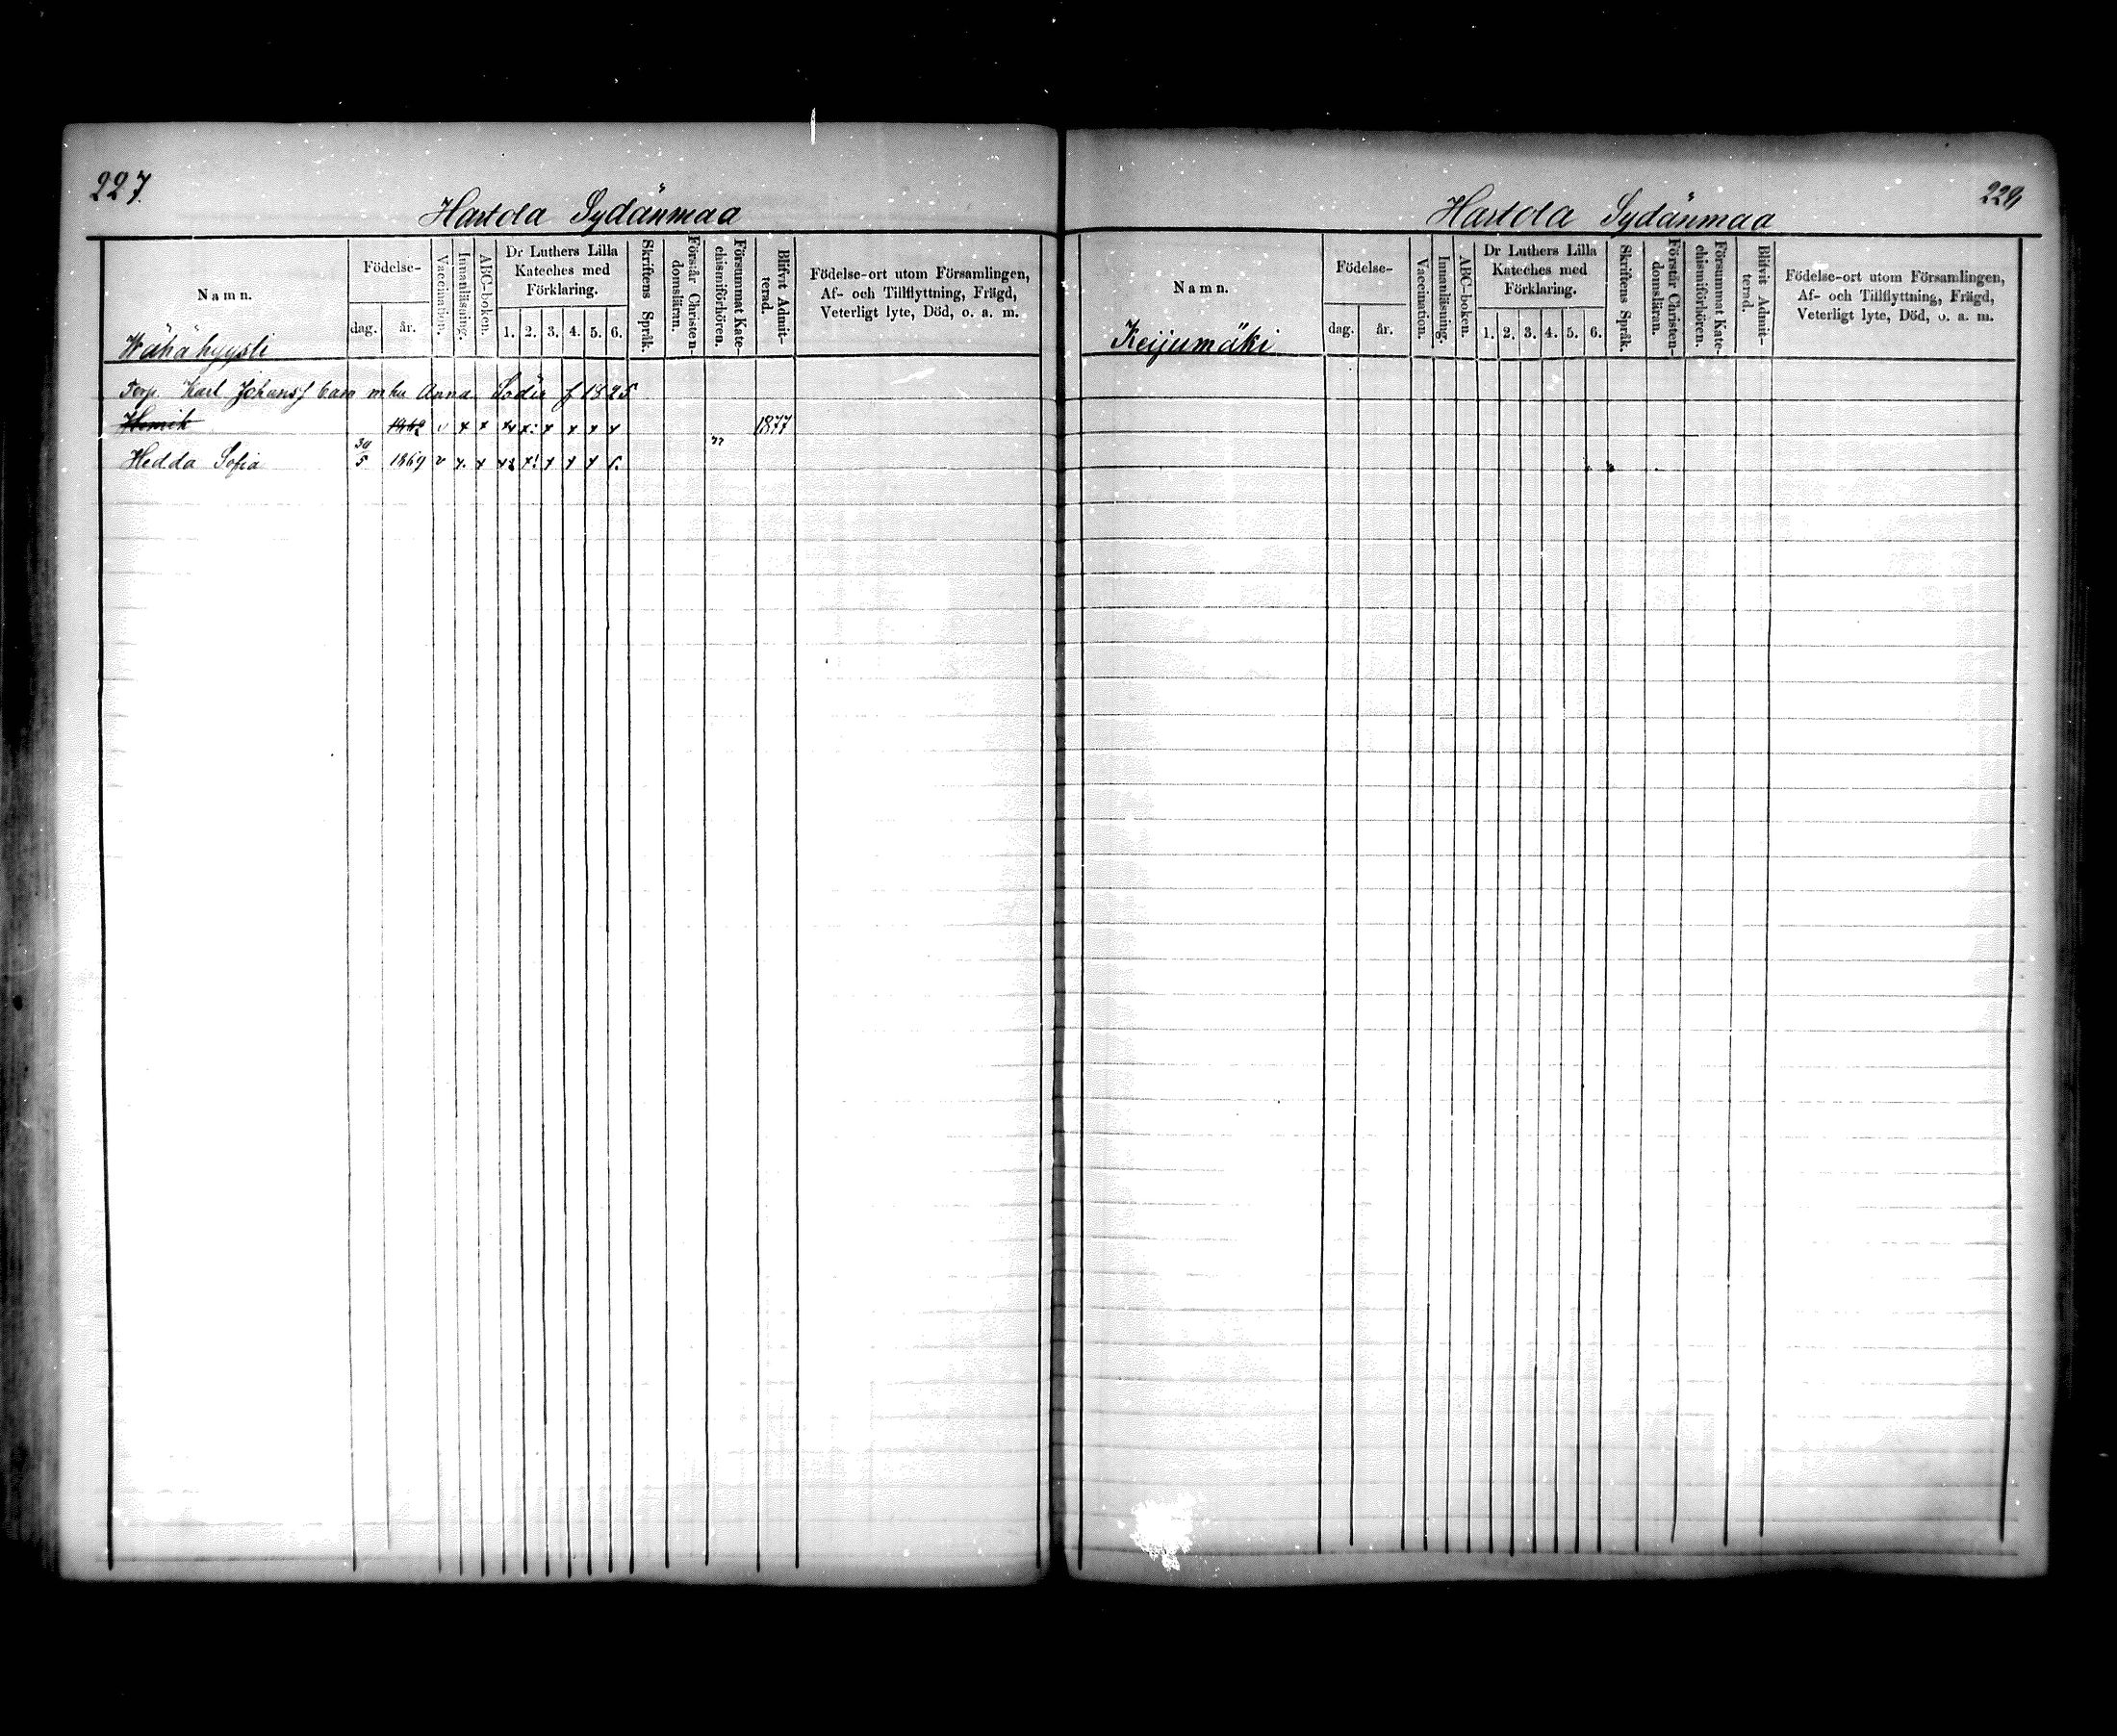 227.
Hartola Sydänmaa
Namn.
Födelse-
dag.
år.
Vaccination.
Innanläsning.
ABC-boken.
Dr Luthers Lilla
Kateches med
Förklaring.
1. 2. 3. 4. 5. 6.
Skriftens Språk.
Förstår Christen-
domsläran.
Försummat Kate-
chismiförhören.
Blifvit Admit-
terad.
Födelse-ort utom Församlingen,
Af- och Tillflyttning, Frägd,
Veterligt lyte, Död, o. a. m.
Wähähyysti
Torp. Karl Johans barn m hu Anna f 1825
Henrik 1862 v x x x x x x x x 1877
Hedda Sofia 30/5 1869 v x x x x x x x
229
Hartola Sydänmaa
Namn.
Födelse-
dag.
år.
Vaccination.
Innanläsning.
ABC-boken.
Dr Luthers Lilla
Kateches med
Förklaring.
1. 2. 3. 4. 5. 6.
Skriftens Språk.
Förstår Christen-
domsläran.
Försummat Kate-
chismiförhören.
Blifvit Admit-
terad.
Födelse-ort utom Församlingen,
Af- och Tillflyttning, Frägd,
Veterligt lyte, Död, o. a. m.
Keijumäki